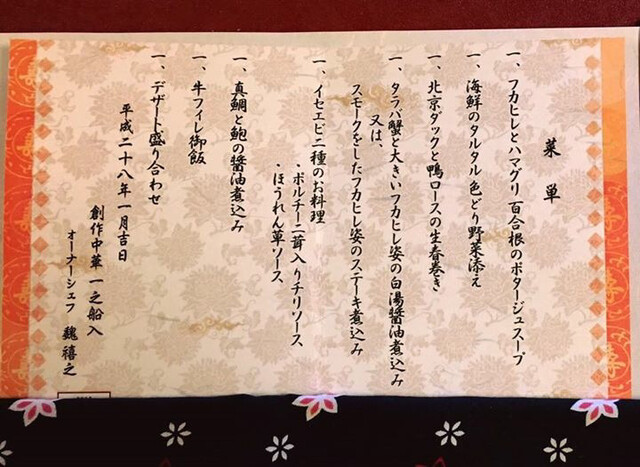 菜単
一、フカヒレとハマグリ百合根のポタージュスープ
一、海鮮のタルタル色どり野菜添え
一、北京ダックと鴨ロースの生春巻き
一、タラバ蟹と大きいフカヒレ姿の白湯醤油煮込み
又は、
スモークをしたフカヒレ姿のステーキ煮込み
一、イセエビ二種のお料理
・ポルチーニ茸入りチリソース
・ほうれん草ソース
一、真鯛と鮑の醬油煮込み
一、牛フィレ御飯
一、デザート盛り合わせ
平成二十八年一月吉日
創作中華 一之船入
オーナーシェフ 魏禧之